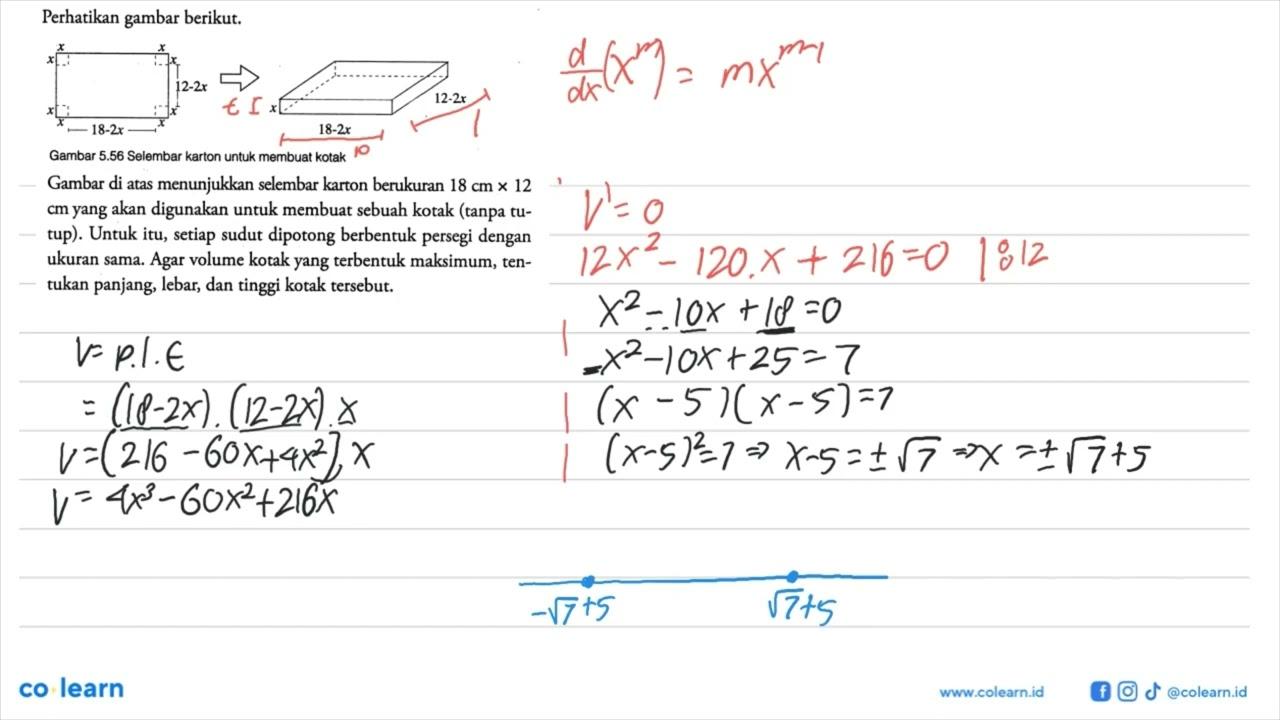 Perhatikan gambar berikut.
x x
x x
12-2x
x x
x x
18-2x
t
x
12-2x
l
18-2x
p
Gambar 5.56 Selembar karton untuk membuat kotak
Gambar di atas menunjukkan selembar karton berukuran 18 cm × 12
cm yang akan digunakan untuk membuat sebuah kotak (tanpa tu-
tup). Untuk itu, setiap sudut dipotong berbentuk persegi dengan
ukuran sama. Agar volume kotak yang terbentuk maksimum, ten-
tukan panjang, lebar, dan tinggi kotak tersebut.
V = p.l.t
= (18-2x).(12-2x).x
V = (216 - 60x + 4x²).x
V = 4x³ - 60x² + 216x
d/dx (x^m) = mx^(m-1)
V' = 0
12x² - 120.x + 216 = 0 | : 12
x² - 10x + 18 = 0
x² - 10x + 25 = 7
(x - 5)(x - 5) = 7
(x-5)² = 7 ⇒ x-5 = ±√7 ⇒ x = ±√7+5
-√7+5 √7+5
co learn
www.colearn.id @colearn.id